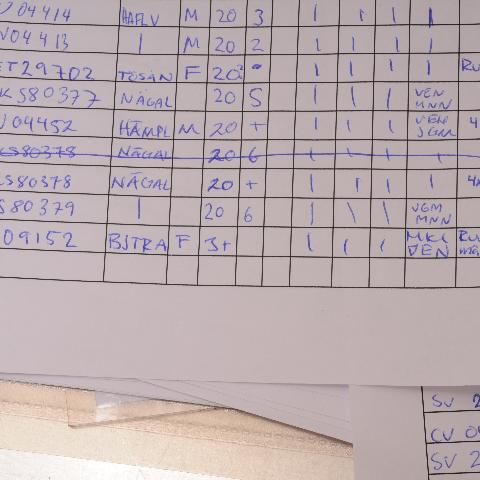 04414 HAFLV M 20 3 | | | |
V04413 | M 20 2 | | | |
ET29702 TOSÅN F 20 | | | | RU
KS80377 NÄGAL 20 5 | | | VEN MNN
V04452 HÄMPL M 20 + | | | VEN JGM 4
KS80378 NÄGAL 20 6 | | | |
KS80378 NÄGAL 20 + | | | | 4
S80379 | 20 6 | | | VGM MNN
09152 BJTRA F 3+ | | | MKL VEN RU
SV 2
CV 0
SV 2